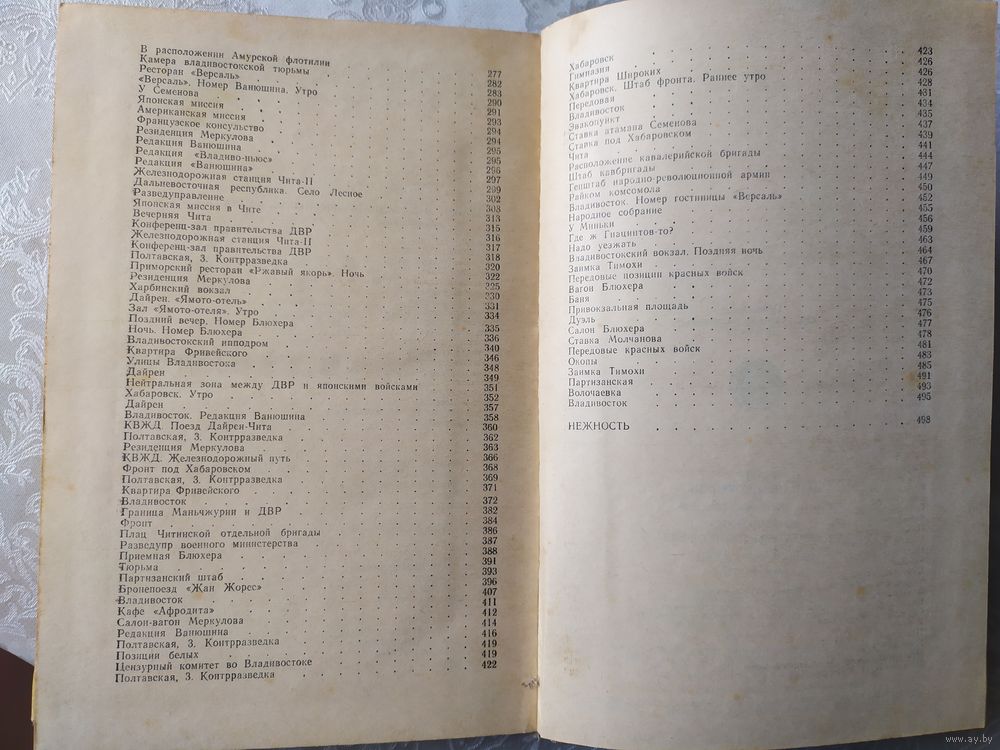 В расположении Амурской флотилии 277
Камера владивостокской тюрьмы 282
Ресторан «Версаль» 283
«Версаль». Номер Ванюшина. Утро 290
У Семенова 291
Японская миссия 293
Американская миссия 294
Французское консульство 294
Резиденция Меркулова 295
Редакция Ванюшина 295
Редакция «Владиво-ньюс» 296
Редакция «Ванюшина» 297
Железнодорожная станция Чита-II 299
Дальневосточная республика. Село Лесное 302
Разведуправление 308
Японская миссия в Чите 313
Вечерняя Чита 315
Конференц-зал правительства ДВР 316
Железнодорожная станция Чита-II 317
Конференц-зал правительства ДВР 318
Полтавская, 3. Контрразведка 320
Приморский ресторан «Ржавый якорь». Ночь 322
Резиденция Меркулова 325
Харбинский вокзал 330
Дайрен. «Ямото-отель» 331
Зал «Ямото-отеля». Утро 334
Поздний вечер. Номер Блюхера 335
Ночь. Номер Блюхера 336
Владивостокский ипподром 340
Квартира Фривейского 346
Улицы Владивостока 348
Дайрен 349
Нейтральная зона между ДВР и японскими войсками 351
Хабаровск. Утро 352
Дайрен 357
Владивосток. Редакция Ванюшина 358
КВЖД. Поезд Дайрен-Чита 360
Полтавская, 3. Контрразведка 362
Резиденция Меркулова 363
КВЖД. Железнодорожный путь 366
Фронт под Хабаровском 368
Полтавская, 3. Контрразведка 369
Квартира Фривейского 371
Владивосток 372
Граница Маньчжурии и ДВР 382
Фронт 384
Плац Читинской отдельной бригады 386
Разведупр военного министерства 387
Приемная Блюхера 388
Тюрьма 391
Партизанский штаб 393
Бронепоезд «Жан Жорес» 396
Владивосток 407
Кафе «Афродита» 411
Салон-вагон Меркулова 412
Редакция Ванюшина 414
Полтавская, 3. Контрразведка 416
Позиции белых 419
Цензурный комитет во Владивостоке 419
Полтавская, 3. Контрразведка 422
Хабаровск 423
Гимназия 426
Квартира Широких 426
Хабаровск. Штаб фронта. Раннее утро 428
Передовая 431
Владивосток 434
Эвакопункт 435
Ставка атамана Семенова 437
Ставка под Хабаровском 439
Чита 441
Расположение кавалерийской бригады 444
Штаб кавбригады 447
Генштаб народно-революционной армии 449
Райком комсомола 450
Владивосток. Номер гостиницы «Версаль» 452
Народное собрание 455
У Миньки 456
Где ж Гиацинтов-то? 459
Надо уезжать 463
Владивостокский вокзал. Поздняя ночь 464
Заимка Тимохи 467
Передовые позиции красных войск 470
Вагон Блюхера 472
Баня 473
Привокзальная площадь 475
Дуэль 476
Салон Блюхера 477
Ставка Молчанова 478
Передовые красных войск 481
Окопы 483
Заимка Тимохи 485
Партизанская 491
Волочаевка 493
Владивосток 495
НЕЖНОСТЬ 498
www.ay.by